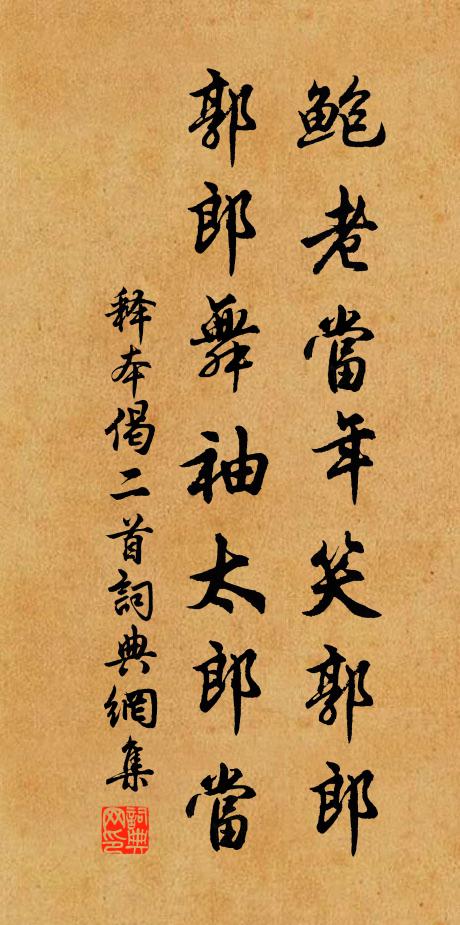 鮑老當年笑郭郎
郭郎舞袖太郎當
释本偈二首詞典網集
詞典
网印